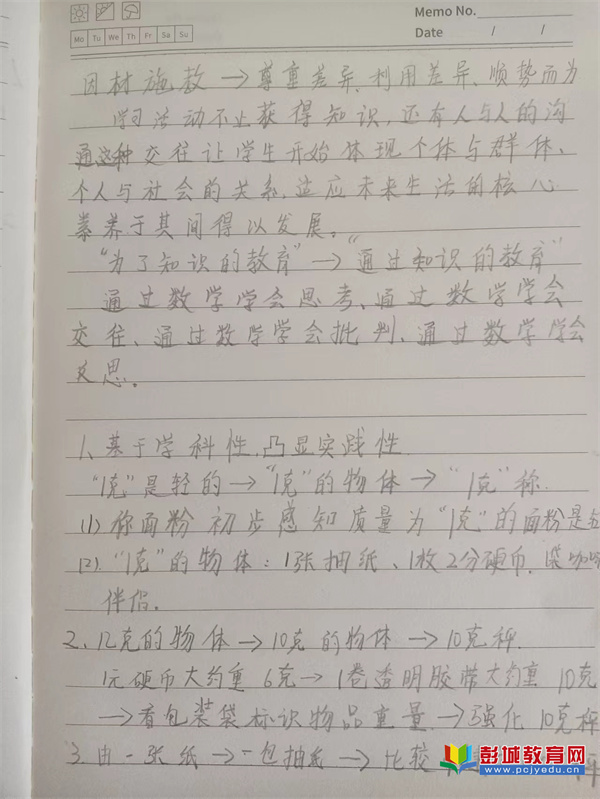 Memo No.
Mo Tu We Th Fr Sa Su
Date / /
因材施教→尊重差异、利用差异、顺势而为
学习活动不止获得知识,还有人与人的沟
通这种交往让学生开始体现个体与群体、
个人与社会的关系,适应未来生活的核心
素养于其间得以发展。
“为了知识的教育”→“通过知识的教育”
通过数学学会思考、通过数学学会
交往、通过数学学会批判、通过数学学会
反思。
1、基于学科性,凸显实践性.
“1克”是轻的→“1克”的物体→“1克”称.
(1)称面粉初步感知质量为“1克”的面粉是
(2).“1克”的物体:1张抽纸、1枚2分硬币.
伴侣.
2、12克的物体→10克的物体→10克秤.
1元硬币大约重6克→1卷透明胶带大约重10克
→看包装袋标识物品重量→强化10克秤
3.由一张纸→一包抽纸→比较
彭城教育网
www.pcjyedu.cn